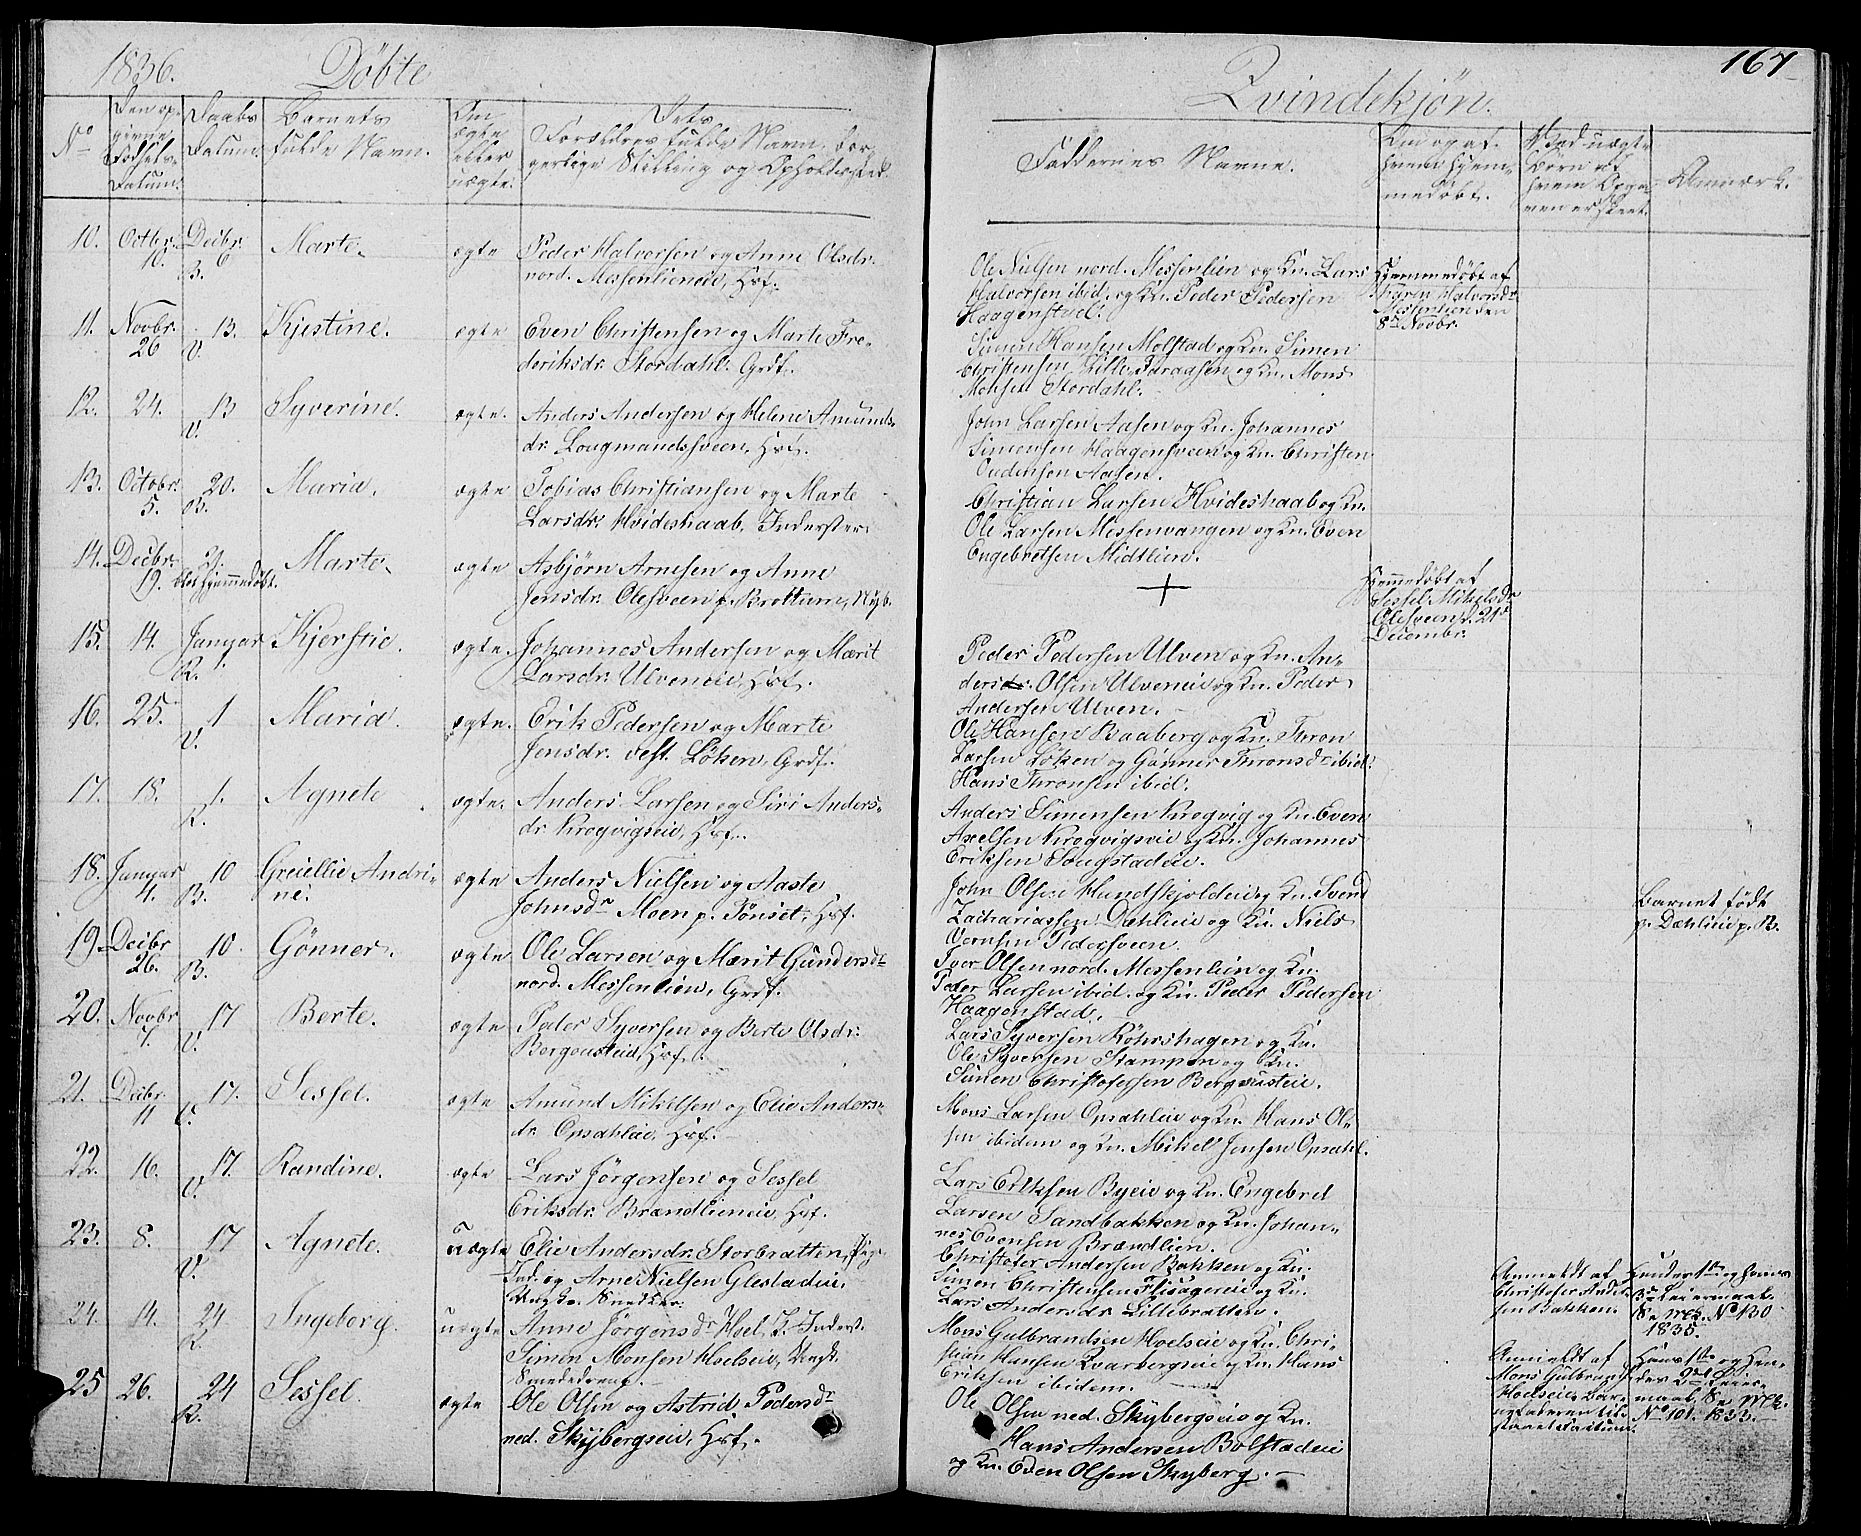 1836. Döbte
Qvindekjön. 167
No
Den opgivne Födsels Datum.
Daabs Datum.
Barnets fulde Navn.
Om ægte eller uægte.
Dets Forældres fulde Navn, borgerlige Stilling og Opholdssted.
Faddernes Navne.
Om og af hvem hjemmedöbt.
Anmærk.
10. Octbr. 10. Decbr. 6 B. Marte. ægte Peder Halvorsen og Anne Olsdr.
nord. Mesenlieneie, Hsf.
Ole Nielsen nord. Messenlien og Kn. Lars
Halvorsen ibid. og Kn. Peder Pedersen
Haagenstad.
Hjemmedöbt af
Karen Halvorsdr
Mesenlien den
8de Novbr.
11. Novbr. 26 13. V. Kjestine. ægte Even Christensen og Marte Fre-
deriksdr. Stordahl. Grdf.
Simen Hansen Molstad og Kn. Simen
Christensen Lille Faraasen og Kn. Mons
Monsen Stordahl.
12. 24. 13 V. Syverine. ægte. Anders Andersen og Helene Amunds-
dr. Lougmandssveen, Hsf.
John Larsen Aasen og Kn. Johannes
Simensen Haagensveen og Kn. Christen
Oudensen Aasen.
13. Octobr. 5. 20. B. Maria. ægte Tobias Christiansen og Marte
Larsdr. Hvideskaab, Inderster.
Christian Larsen Hvideskaab og Kn.
Ole Larsen Messenvangen og Kn. Even
Engebretsen Midtlien.
14. Decbr. 19. 21. blot hjemmedöbt. Marte. ægte Asbjörn Arnesen og Anne
Jensdr. Olesveen p. Brottum, Nyb.
+
Hjemmedöbt af
Sessel Mikelsdr
Olesveen d. 21de
Decembr.
15. 14. Januar 1. R. Kjerstie. ægte. Johannes Andersen og Mærit
Larsdr. Ulveneie, Hsf.
Peder Pedersen Ulven og Kn. An-
ders Olsen Ulveneie og Kn. Peder
Andersen Ulven.
16. 25. 1 V. Maria. ægte. Erik Pedersen og Marte
Jensdr. vest. Löken, Grdf.
Ole Hansen Baaberg og Kn. Thron
Larsen Löken og Gönner Thronsdr ibid.
Hans Thronsen ibid.
17. 18. 1. R. Agnete ægte. Anders Larsen og Siri Anders-
dr. Krogvigseie, Hsf.
Anders Simensen Krogvig og Kn. Even
Axelsen Krogvigseie og Kn. Johannes
Eriksen Sougstadeie.
18. Januar 4. 10 B. Greiellie Andri-
ne. ægte Anders Nielsen og Aaste
Johnsdr Moen p. Tönset, Hsf.
John Olsen Hundskjoldeie og Kn. Svend
Zachariassen Dæhlieie og Kn. Niels
Pedersveen.
Barnet födt
p. Dæhlieie p. B.
19. Decbr 26. 10. B. Gönner. ægte Ole Larsen og Mærit Gundersdr
nord. Messenlien, Grdf.
Iver Olsen nord. Messenlien og Kn.
Peder Larsen ibid. og Kn. Peder Pedersen
Haagenstad.
20. Novbr 7. 17 V. Berte. ægte Peder Syversen og Berte Olsdr.
Bergseteie, Hsf.
Lars Syversen Röhrshagen og Kn.
Ole Syversen Stampen og Kn.
Simen Christofersen Bergseteie.
21. Decbr. 11 17. V. Sessel. ægte Amund Mikelsen og Elie Anders-
dr. Opsahleie, Hsf.
Mons Larsen Opsahleie og Kn. Hans Ol-
sen ibidem og Kn. Mikel Jensen Opsahl.
22. 16. 17. V. Randine. ægte Lars Jörgensen og Sessel
Eriksdr. Brændlieneie, Hsf.
Lars Eriksen Byeie og Kn. Engebret
Larsen Sandbakken og Kn. Johan-
nes Evensen Brændlien.
23. 8. 17 V. Agnete. uægte Elie Andersdr. Storbratten, Pige
Ind. og Arne Nielsen Glestadeie,
Ungk. Snedker.
Christofer Andersen Bakken og Kn.
Simen Christensen Flisageneie og Kn.
Lars Andersdr Lillebratten.
Anmeldt af
Christofer Ander-
sen Bakken.
Hendes 1ste og hans
3de Leiermaal.
Se No 130
1835.
24. 14. 24 R. Ingeborg. uægte Anne Jörgensdr Hoel, K. Inderst.
Simen Monsen Hoelseie, Ungk.
Smededreng.
Mons Gulbrandsen Hoelseie og Kn. Chri-
stian Hansen Kvarbergseie og Kn. Hans
Eriksen ibidem.
Anmeldt af
Mons Gulbrands.
Hoelseie, Bar-
nefaderen til-
Hans 1ste og Hen-
des 2det Leier-
maal. Se
No 101. 1833.
25 26. 24 R. Sessel. ægte Ole Olsen og Astrid Pedersdr
ned. Skybergseie, Hsf.
Ole Olsen ned. Skybergseie og Kn.
Hans Andersen Bolstadeie
og Kn. Even Olsen Skyberg.